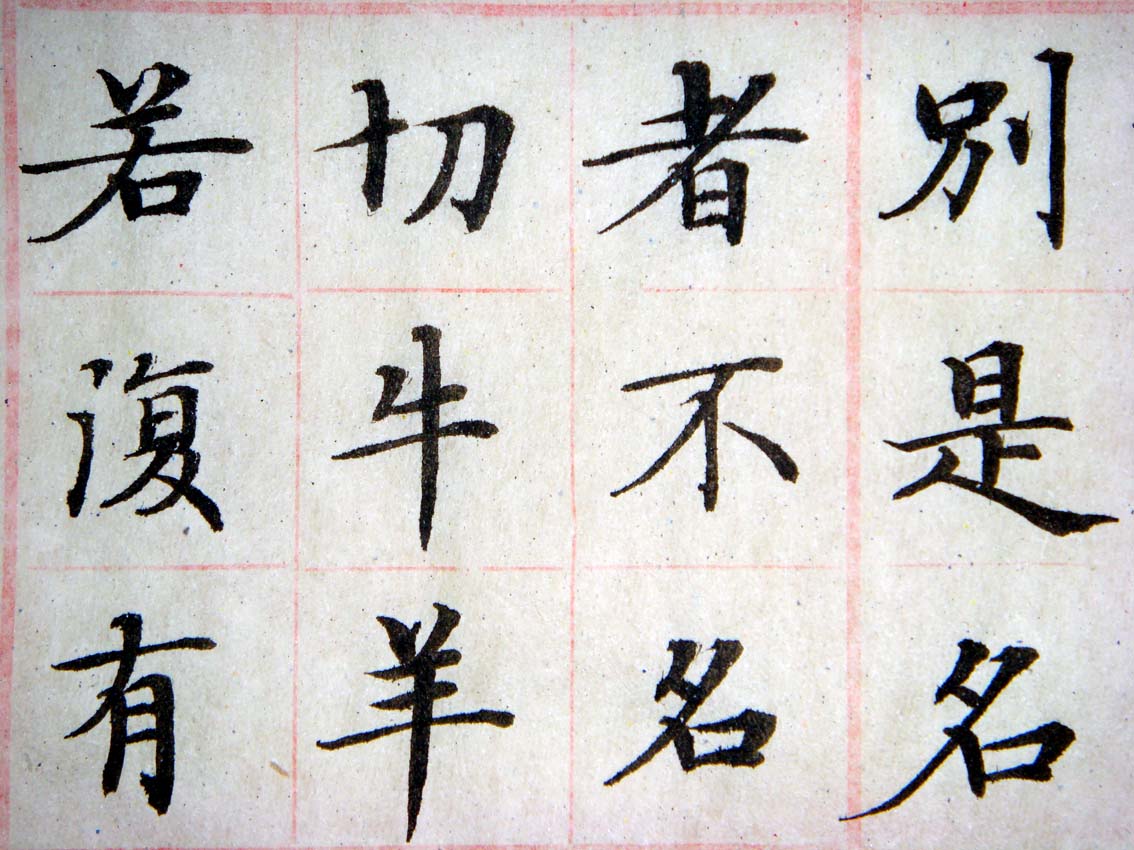 別是名
者不名
切牛羊
若復有